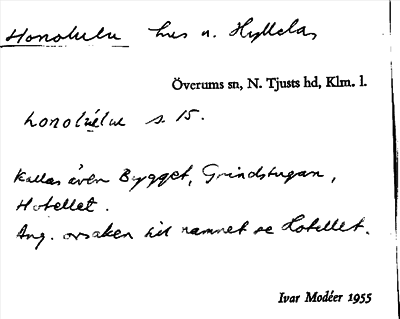 Honolulu hus u. Hyllela,
Överums sn, N. Tjusts hd, Klm. l.
honolúlu s. 15.
Kallas även Bygget, Grindstugan,
Hotellet.
Ang. orsaken till namnet se Hotellet.
Ivar Modéer 1955